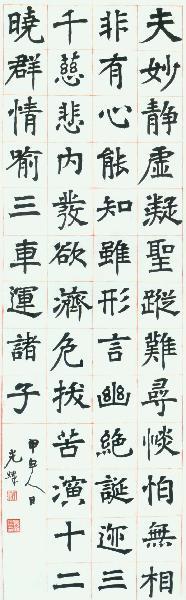 夫妙静虚凝聖蹤難尋惔怕無相
非有心能知雖形言幽絶誕迹三
千慈悲内發欲濟危拔苦演十二
曉群情喻三車運諸子
甲申人日
光燦